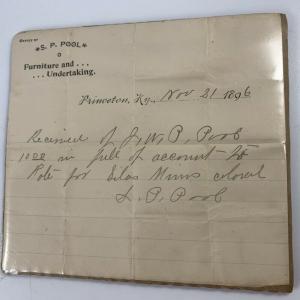 OFFICE OF
*S. P. POOL*
Furniture and ...
... Undertaking.
Princeton, Ky., Nov 21 1896
Received of J, W, P, Pool
10 00 in full of account
Note for Silas Mims colored
S. P. Pool